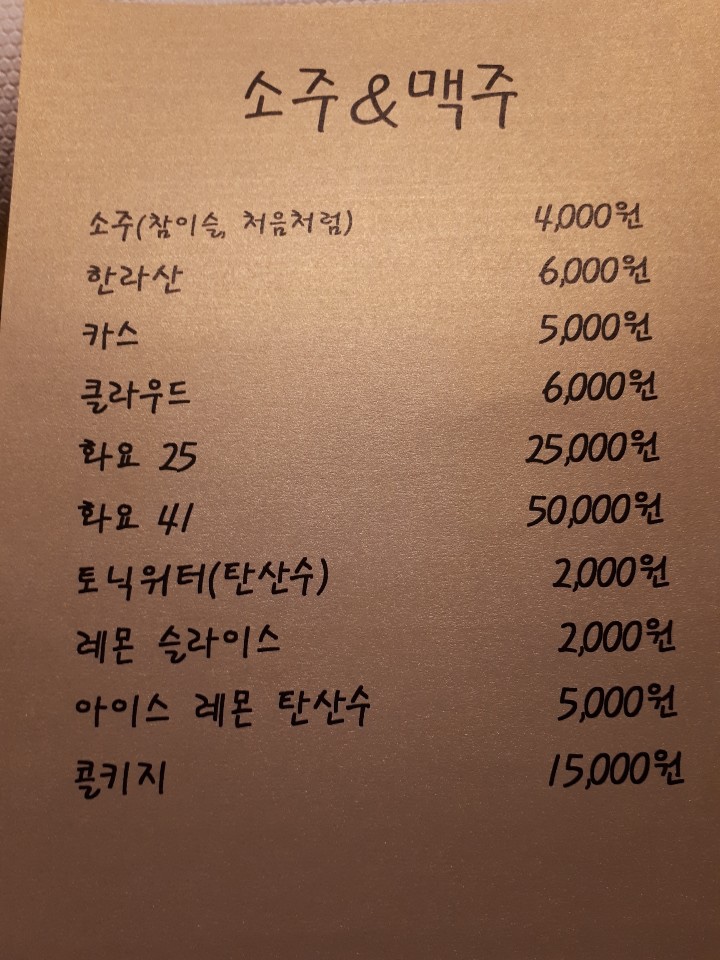 소주&맥주
소주(참이슬, 처음처럼) 4,000원
한라산 6,000원
카스 5,000원
클라우드 6,000원
화요 25 25,000원
화요 41 50,000원
토닉워터(탄산수) 2,000원
레몬 슬라이스 2,000원
아이스 레몬 탄산수 5,000원
콜키지 15,000원